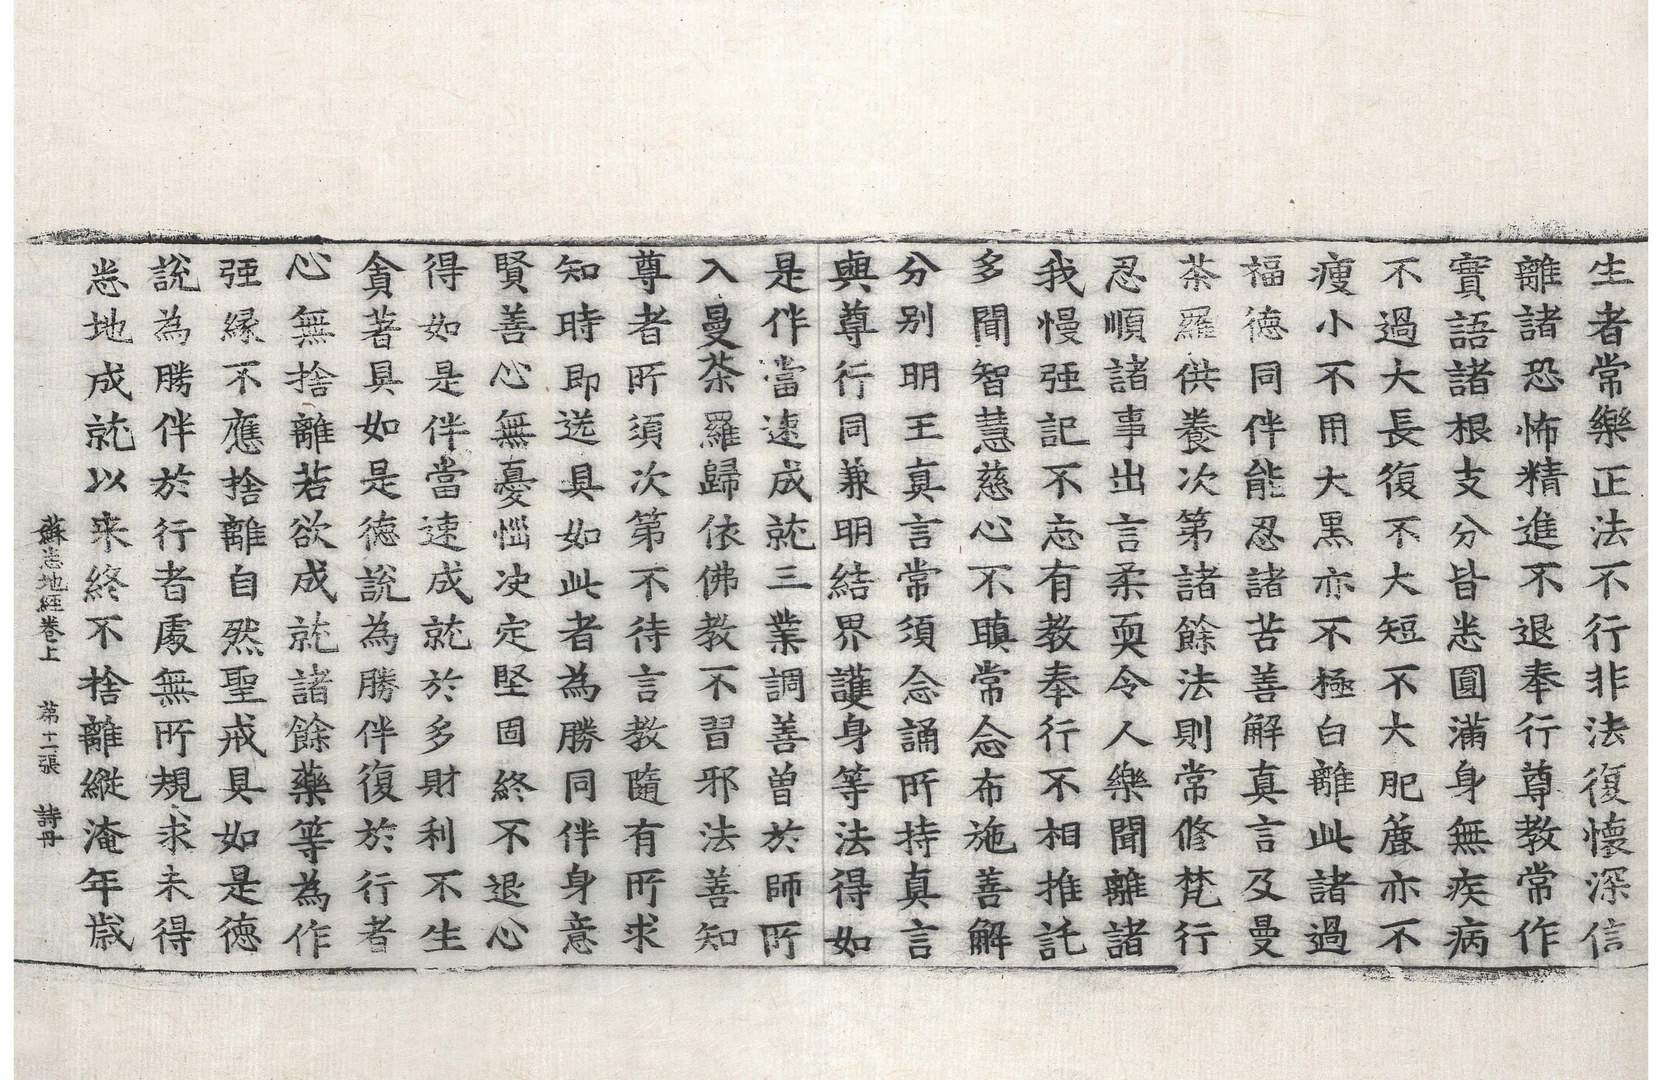 生者常樂正法不行非法復懷深信
離諸恐怖精進不退奉行尊教常作
實語諸根支分皆悉圓滿身無疾病
不過大長復不大短不大肥麁亦不
瘦小不用大黑亦不極白離此諸過
福德同伴能忍諸苦善解真言及曼
茶羅供養次第諸餘法則常修梵行
忍順諸事出言柔耎令人樂聞離諸
我慢强記不忘有教奉行不相推託
多聞智慧慈心不瞋常念布施善解
分別明王真言常須念誦所持真言
與尊行同兼明結界護身等法得如
是伴當速成就三業調善曾於師所
入曼茶羅歸依佛教不習邪法善知
尊者所須次第不待言教隨有所求
知時即送具如此者為勝同伴身意
賢善心無憂惱决定堅固終不退心
得如是伴當速成就於多財利不生
貪著具如是德說為勝伴復於行者
心無捨離若欲成就諸餘藥等為作
强緣不應捨離自然聖戒具如是德
說為勝伴於行者處無所規求未得
悉地成就以来終不捨離縱淹年歲
蘇悉地經卷上 第十一張 詩冊